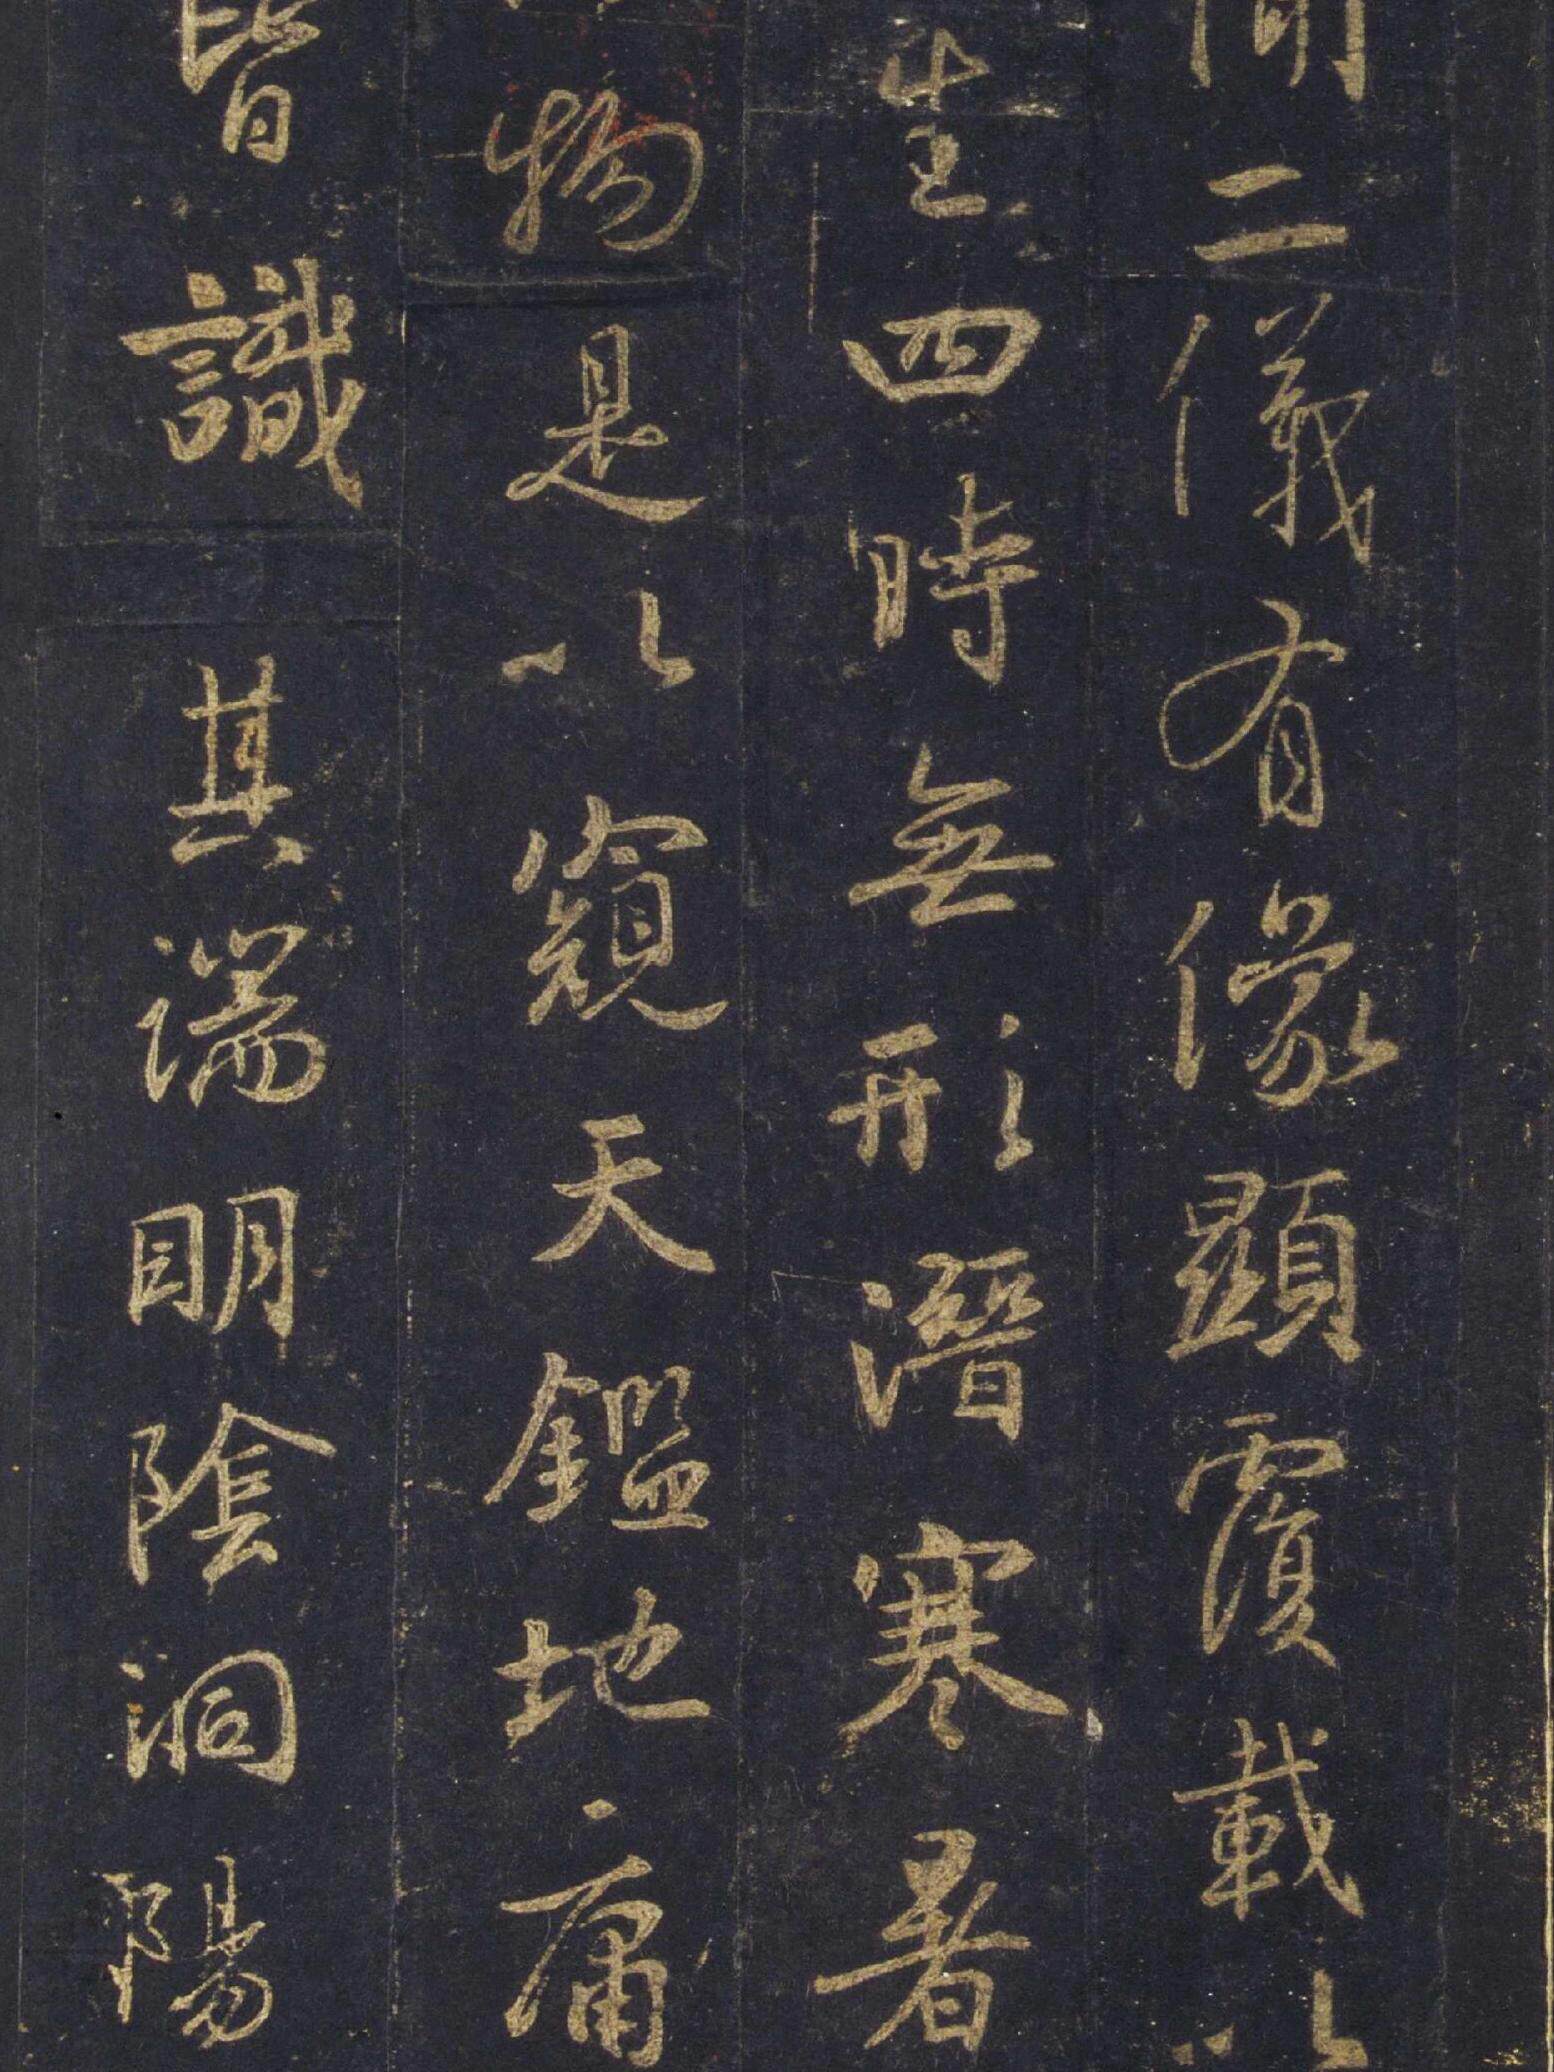 聞二儀有像顯覆載以
生四時無形潛寒暑
物是以窺天鑑地庸
皆識其端明陰洞陽